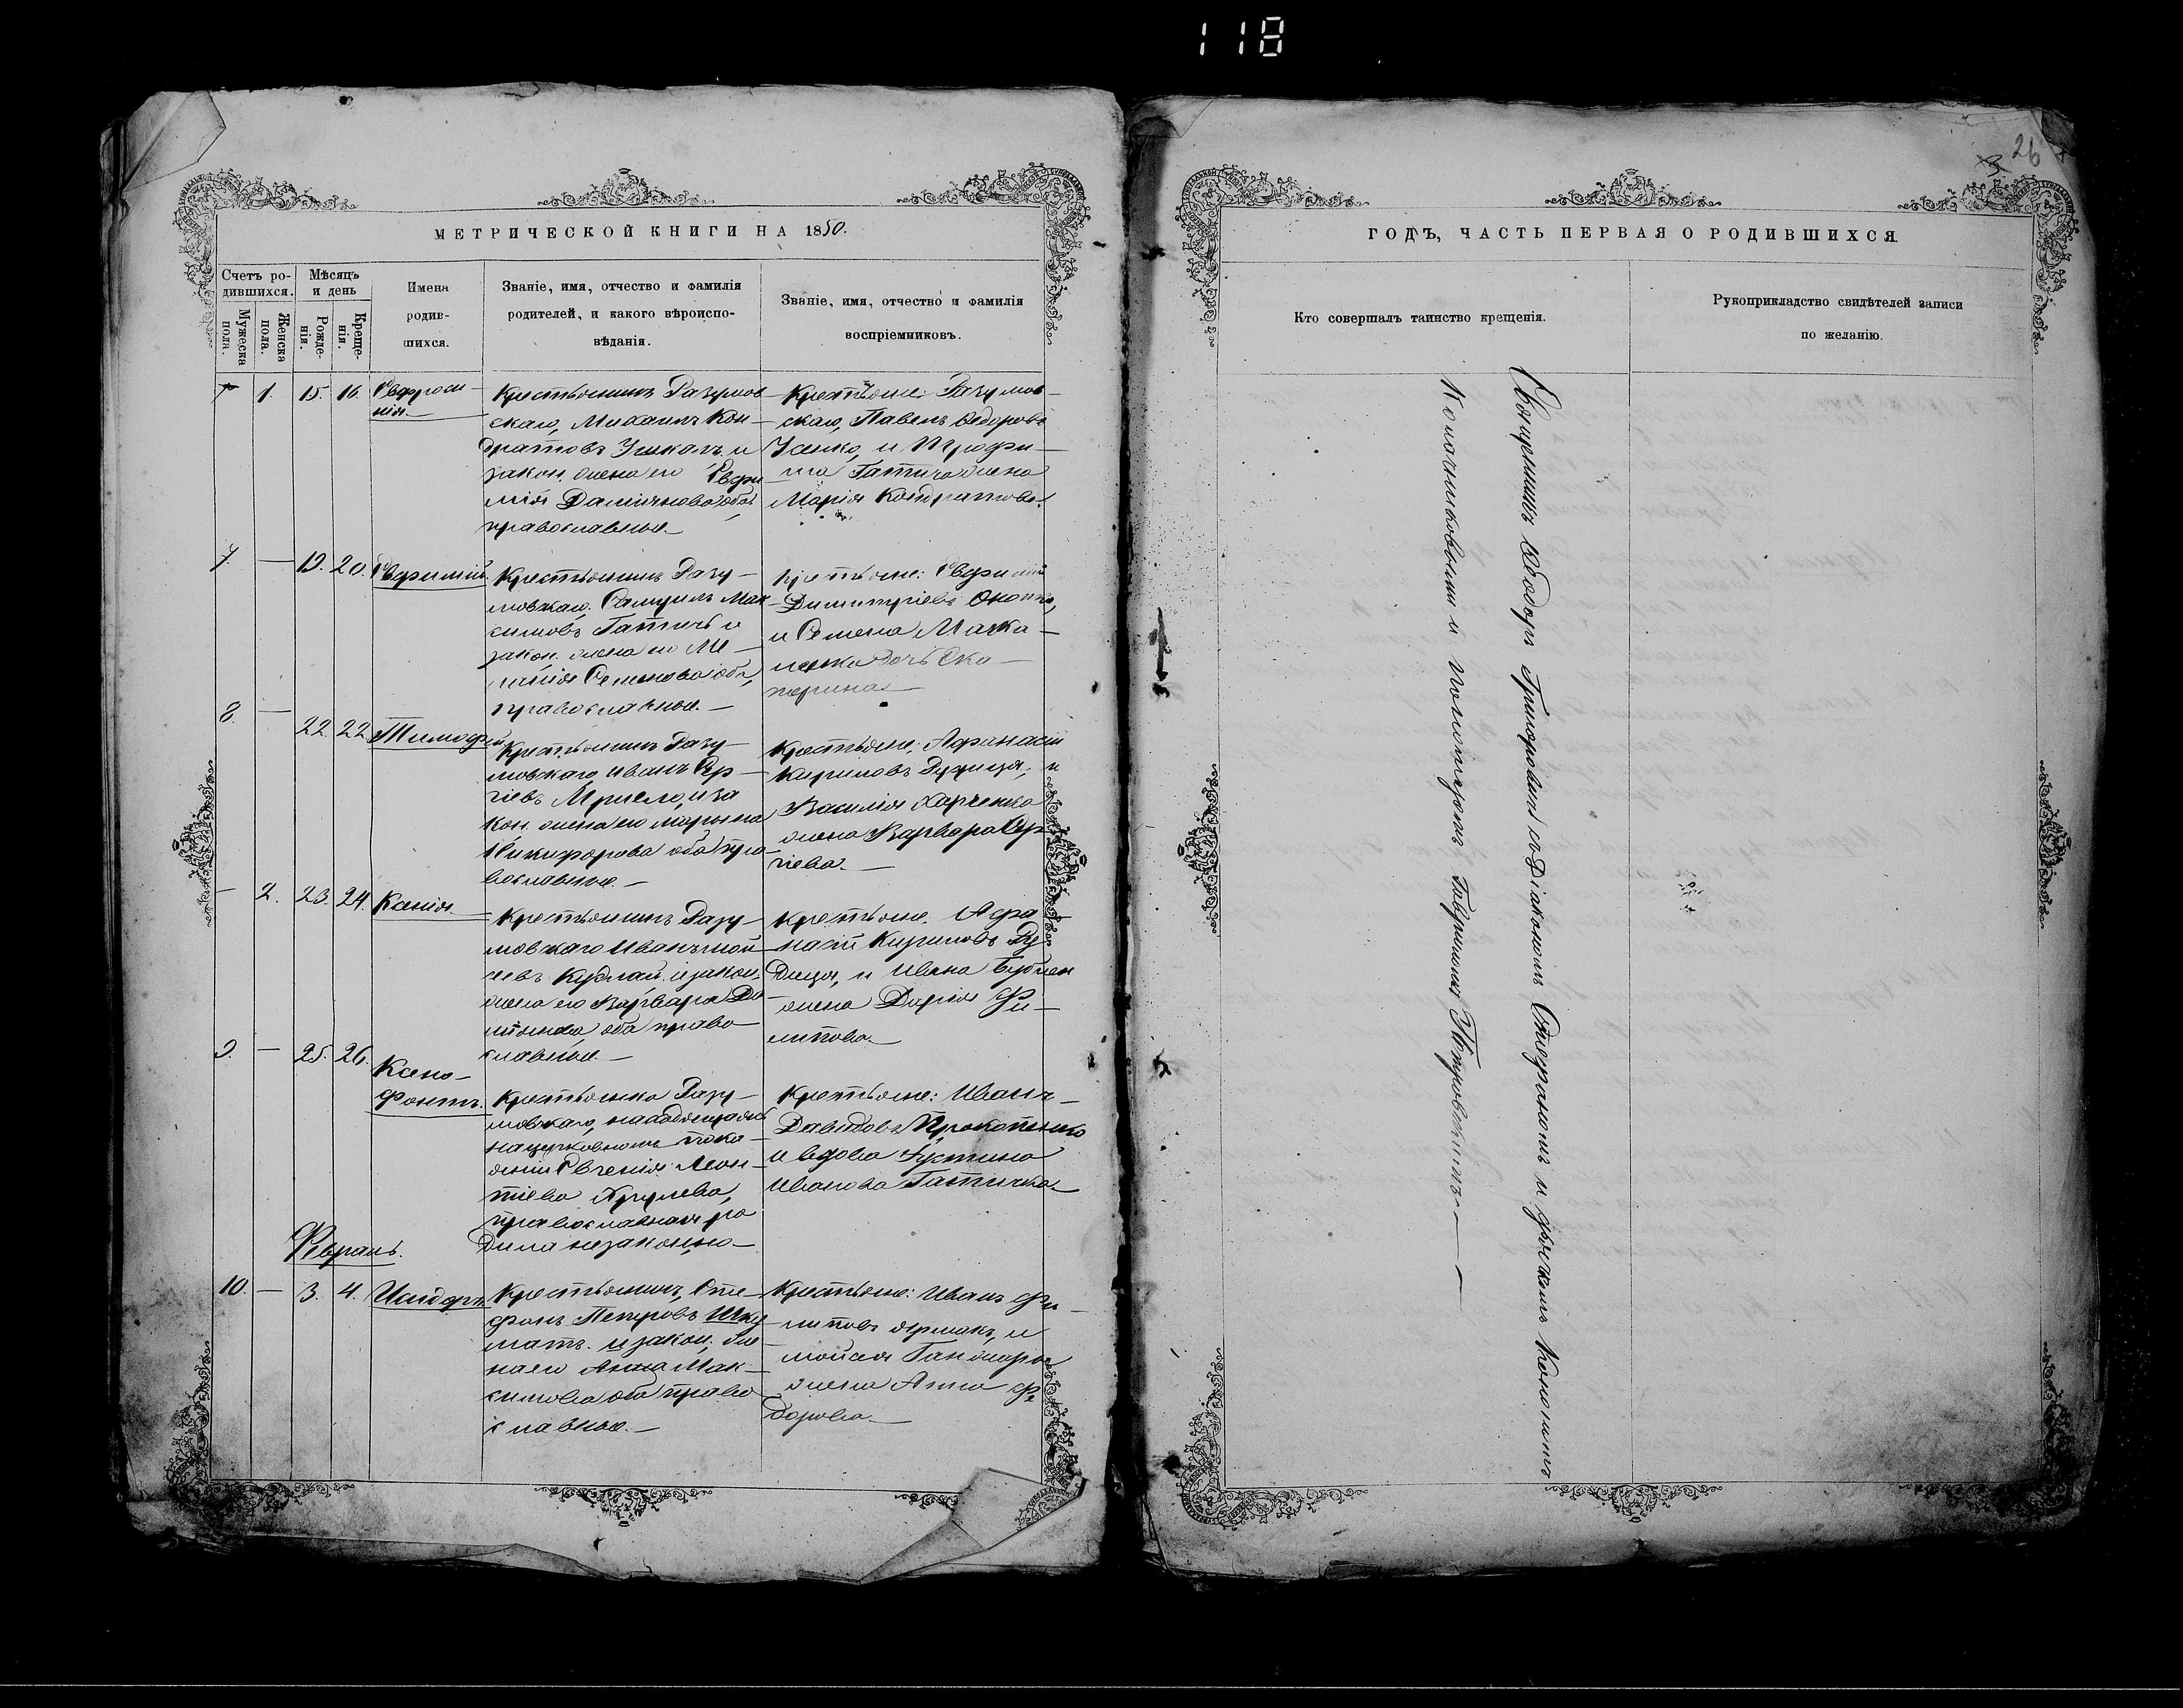 118
МЕТРИЧЕСКОЙ КНИГИ НА 1850.
Счетъ ро-
дившихся.
Мужеска
пола.
Женска
пола.
Мѣсяцъ
и день
Рожде-
нія.
Креще-
нія.
Имена
родив-
шихся.
Званіе, имя, отчество и фамилія
родителей, и какого вѣроиспо-
вѣданія.
Званіе, имя, отчество и фамилія
воспріемниковъ.
1. 15. 16. Евфроси-
нія.
Крестьянинъ Разумов-
скаго, Михаилъ Кон-
дратовъ и
закон. жена его Евфи-
мія Даміянова оба
православные.
Крестьяне: Разумов-
скаго, Павелъ Ѳедоровъ
Усенко, и Трофи-
ма Гатича жена
Марія Кондратова.
7. — 19. 20. Евфимій.
Крестьянинъ Разу-
мовскаго, Самуилъ Мак-
симовъ Гатичъ и
закон. жена его Ме-
ланія Семенова оба
православные.—
Крестьяне: Евфимій
Димитріевъ
и Семена Мачка-
дочь Ека-
терина.—
8. — 22. 22. Тимофей
Крестьянинъ Разу-
мовскаго, Иванъ Сер-
гіевъ и за
кон. жена его Марьяна
Никифорова оба пра-
вославные.—
Крестьяне: Афанасій
Кириловъ Дудица, и
Василія Харченка
жена Варвара Сер-
гіева.—
— 2. 23. 24. Ксенія.
Крестьянинъ Разу-
мовскаго Иванъ Мой-
сеевъ Кудлай, и закон.
жена его Варвара
оба право-
славные.—
Крестьяне: Афа-
насій Кириловъ Ду-
дица, и Ивана
жена Дарія Фи-
липова.—
9. — 25. 26. Ксено-
фонтъ.
Крестьянка Разу-
мовскаго,
на церковномъ пока-
яніи Евгенія Леон-
тіева
православная ро
дила незаконно—
Крестьяне: Иванъ
Давидовъ Прокопенко
и вдова Іустина
Иванова Гатичка.—
Февраль.
10. — 3. 4. Исидоръ
Крестьянинъ, Сте-
фанъ Петровъ Шку-
матъ. и закон. же-
на его Анна Мак-
симова оба право
славные.—
Крестьяне: Иванъ Фи-
липовъ Ярмакъ, и
Мойсея Ганжары
жена Анна Фе-
дорова.—
26
ГОДЪ, ЧАСТЬ ПЕРВАЯ О РОДИВШИХСЯ.
Кто совершалъ таинство крещенія.
Рукоприкладство свидѣтелей записи
по желанію.
Священникъ Ѳеодоръ Григоровичъ съ Діакономъ Стефаномъ и Дьячкомъ
и пономаремъ Гавриломъ Петровскимъ——